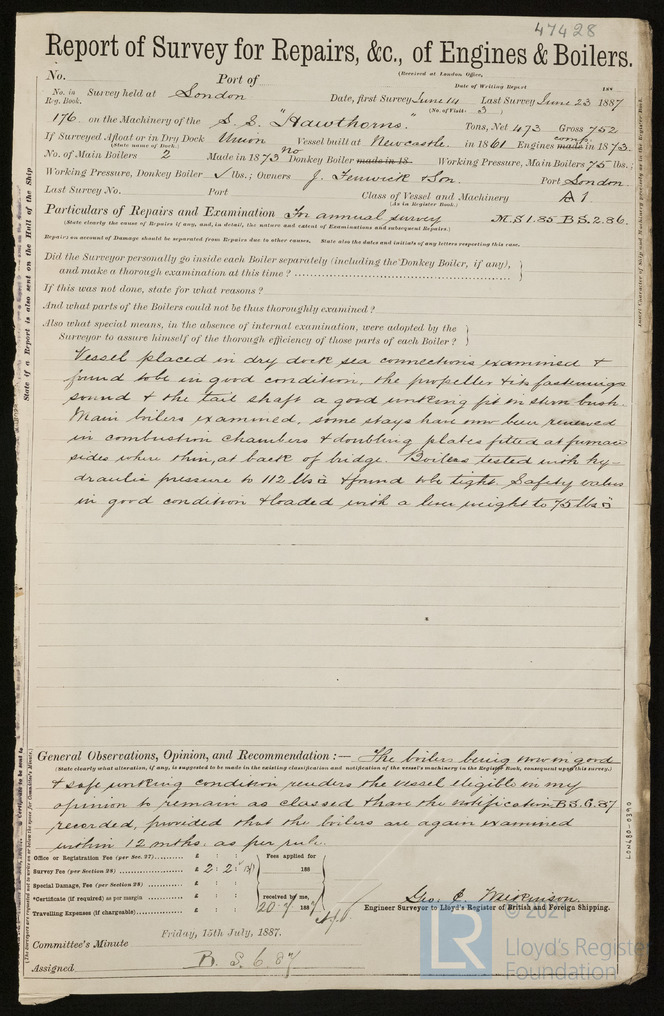 47428
Report of Survey for Repairs, &c., of Engines & Boilers.
(Received at London Office,
No. Port of
Date of Writing Report 188
No. in Reg. Book. Survey held at London Date, first Survey June 14 Last Survey June 23 1887
(No. of Visits 3)
176. on the Machinery of the S.S. "Hawthorns." Tons, Net 473 Gross 752
If Surveyed Afloat or in Dry Dock Union Vessel built at Newcastle. in 1861 Engines comp. made in 1873.
(State name of Dock.)
No. of Main Boilers 2 Made in 1873 no Donkey Boiler made in 18 Working Pressure, Main Boilers 75 lbs.;
Working Pressure, Donkey Boiler ✓ lbs.; Owners J. Fenwick & Son. Port London
Last Survey No. Port Class of Vessel and Machinery A1
(As in Register Book.)
Particulars of Repairs and Examination For annual survey M.S 1.85 B.S. 2.86.
(State clearly the cause of Repairs if any, and, in detail, the nature and extent of Examinations and subsequent Repairs.)
Repairs on account of Damage should be separated from Repairs due to other causes. State also the dates and initials of any letters respecting this case.
Did the Surveyor personally go inside each Boiler separately (including the Donkey Boiler, if any),
and make a thorough examination at this time?
If this was not done, state for what reasons?
And what parts of the Boilers could not be thus thoroughly examined?
Also what special means, in the absence of internal examination, were adopted by the
Surveyor to assure himself of the thorough efficiency of those parts of each Boiler?
Vessel placed in dry dock sea connections examined &
found to be in good condition, the propeller & its fastenings
sound & the tail shaft a good working fit in stern bush.
Main boilers examined, some stays have now been renewed
in combustion chambers & doubling plates fitted at furnace
sides where thin, at back of bridge. Boilers tested with hy-
draulic pressure to 112 lbs □ & found to be tight. Safety valves
in good condition & loaded with a lever weight to 75 lbs □
General Observations, Opinion, and Recommendation :— The boilers being now in good
(State clearly what alteration, if any, is suggested to be made in the existing classification and notification of the vessel's machinery in the Register Book, consequent upon this survey.)
& safe working condition renders the vessel eligible in my
opinion to remain as classed than the notification B.S. 6.87
recorded, provided that the boilers are again examined
within 12 mths. as per rule.
Office or Registration Fee (per Sec. 27) £ : : Fees applied for
Survey Fee (per Section 28) £ 2 : 2 : 188
Special Damage, Fee (per Section 28) £ : :
*Certificate (if required) as per margin £ : : received by me,
Travelling Expenses (if chargeable) £ : : 20.7 1887
Geo. C. Wilkinson.
Engineer Surveyor to Lloyd's Register of British and Foreign Shipping.
Friday, 15th July, 1887.
Committee's Minute
Assigned B. S. 6.87
State if a Report is also sent on the Hull of the Ship
LON480-0390
© 2021
LR
Lloyd's Register
Foundation